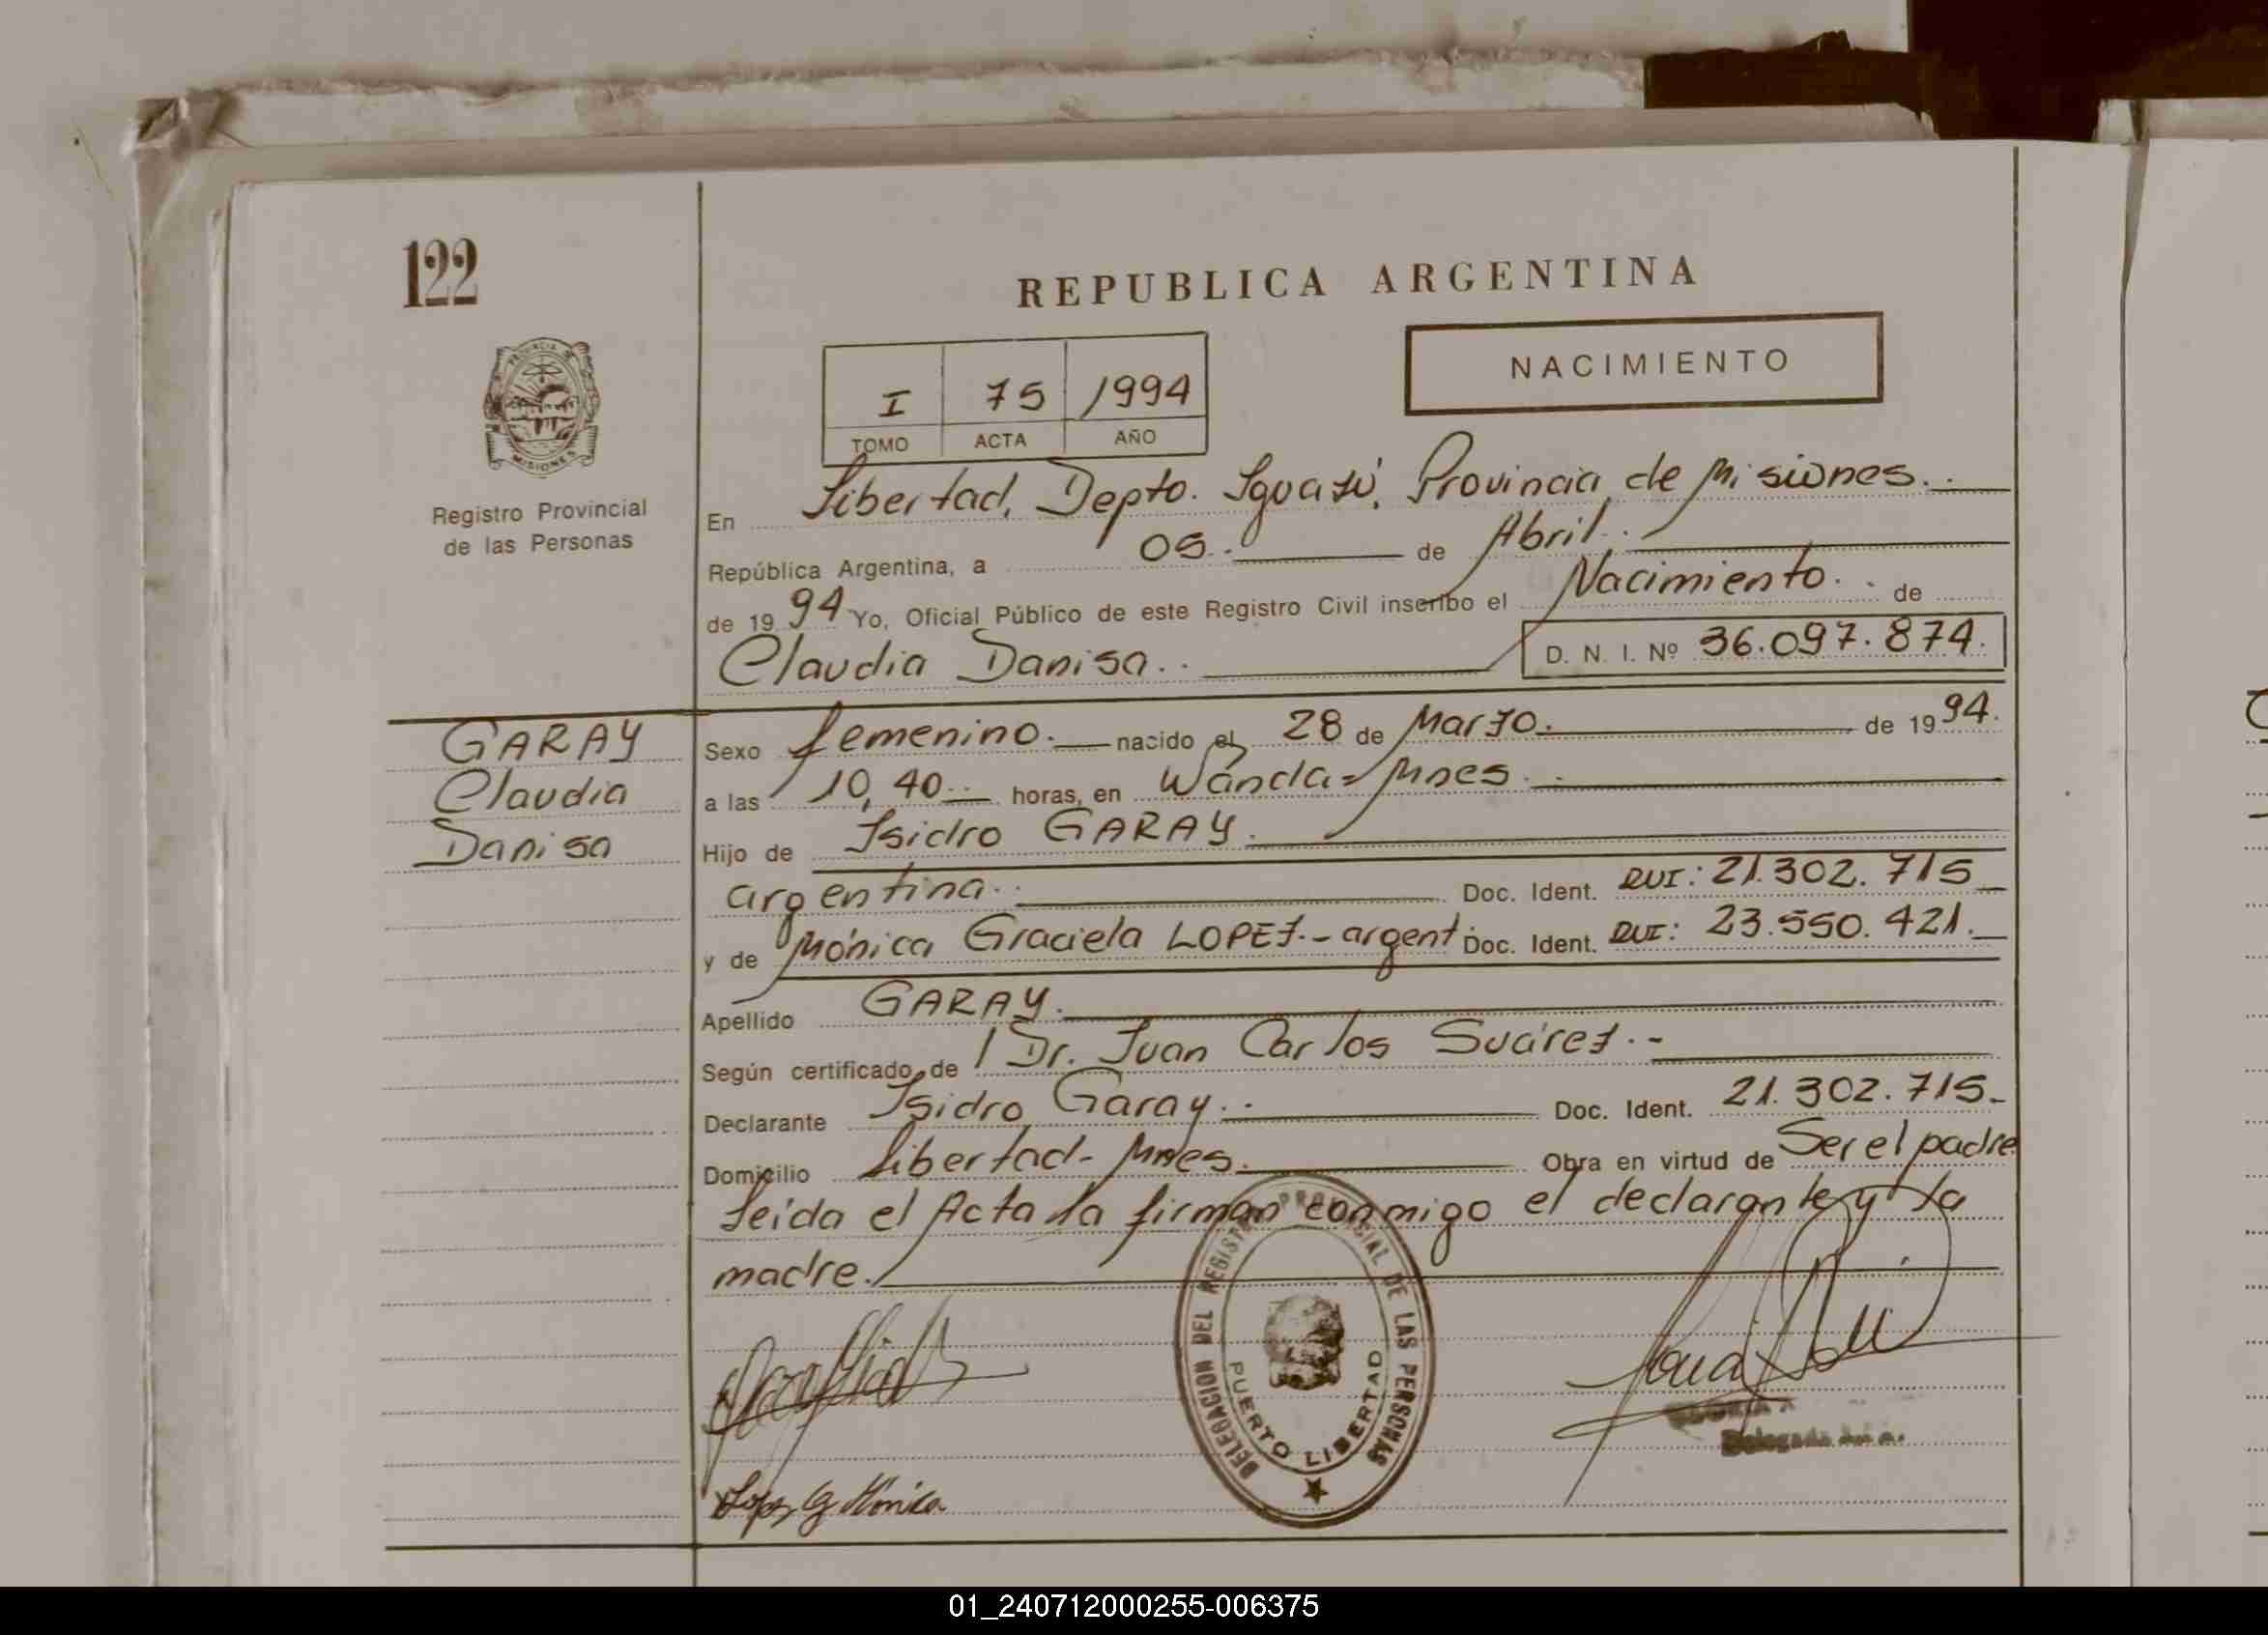 122
REPUBLICA ARGENTINA
NACIMIENTO
I 75 1994
TOMO ACTA AÑO
PROVINCIA DE MISIONES
Registro Provincial
de las Personas
En Libertad, Depto. Iguazú, Provincia de Misiones.
República Argentina, a 05 de Abril
de 1994 Yo, Oficial Público de este Registro Civil inscribo el Nacimiento de
Claudia Danisa D. N. I. Nº 36.097.874.
GARAY
Claudia
Danisa
Sexo femenino. nacido el 28 de Marzo de 1994.
a las 10,40 horas, en Wanda = Mnes.
Hijo de Isidro GARAY.
argentina. Doc. Ident. DUI: 21.302.715
y de Mónica Graciela LOPEZ.- argent. Doc. Ident. DUI: 23.550.421.
Apellido GARAY.
Según certificado de Dr. Juan Carlos Suárez.-
Declarante Isidro Garay. Doc. Ident. 21.302.715-
Domicilio Libertad- Mnes. Obra en virtud de Ser el padre
Leída el Acta la firman conmigo el declarante y la
madre.
DELEGACION DEL REGISTRO PROVINCIAL DE LAS PERSONAS
PUERTO LIBERTAD
Delegada
Lopez G Mónica
01_240712000255-006375